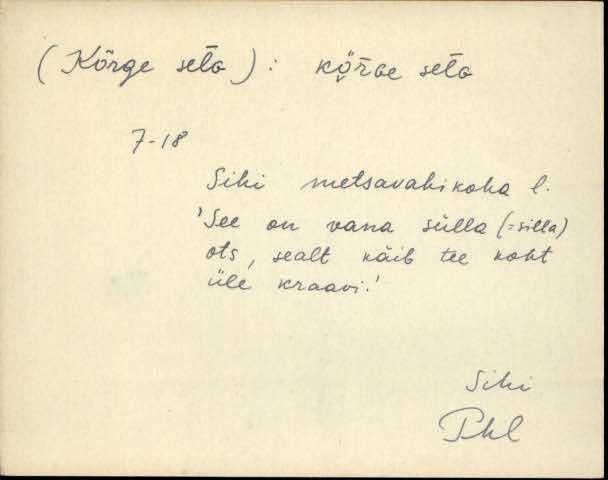 (Kõrge seto): kõ̭r̄ɢe seto
7-18
Sihi metsavahikoha l.
'See on vana sülla (=silla)
ots, sealt käib tee koht
üle kraavi.'
Sihi
Phl